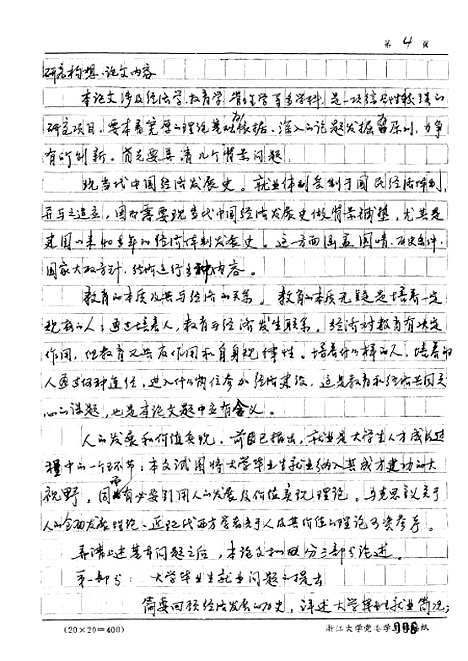 第 4 页
研究构想、论文内容
本论文涉及经济学、教育学、哲学等多学科,是一项综合性较强的
研究项目,要本着宽厚的理论基础、深入的论题发掘原则,力争
有所创新。首先要弄清几个背景问题。
现当代中国经济发展史。就业体制受制于国民经济体制,
并与之适应,因而需要现当代中国经济发展史做背景铺垫,尤其是
建国以来和多年的经济体制发展史。这一方面涵盖国情、历史条件、
国家大政方针、经济运行多种内容。
教育的本质及其与经济的关系。教育的本质无疑是培养一定
规格的人;通过培养人,教育与经济发生联系。经济对教育有决定
作用,但教育又具反作用和自身规律性。培养什么样的人,培养的
人通过何种途径,进入什么岗位参加经济建设,这是教育和经济共同关
心的话题,也是本论文题中应有含义。
人的发展和价值实现。前面已指出,就业是大学生人才成长过
程中的一个环节;本文试图将大学毕业生就业纳入其成才成功的大
视野,因而有必要引用人的发展及价值实现理论。马克思主义关于
人的全面发展理论、近现代西方学者关于人及其价值的理论可资参考。
弄清上述基本问题之后,本论文拟分三部分论述。
第一部分:大学毕业生就业问题的提出
简要回顾经济发展的历史,详述大学毕业生就业简况;
(20×20=400)
浙江大学党委学